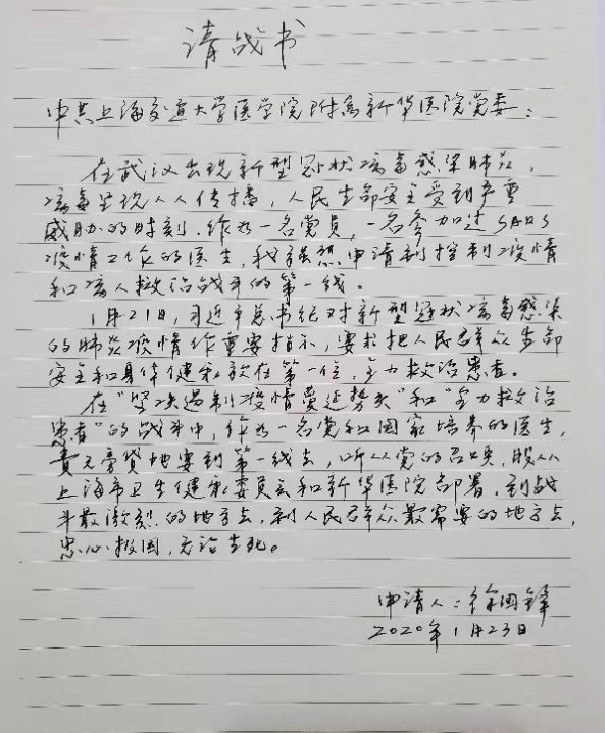 请战书
中共上海交通大学医学院附属新华医院党委：
在武汉出现新型冠状病毒感染肺炎，
病毒呈现人人传播，人民生命安全受到严重
威胁的时刻，作为一名党员，一名参加过SARS
疫情工作的医生，我强烈申请到控制疫情
和病人救治战斗的第一线。
1月21日，习近平总书记对新型冠状病毒感染
的肺炎疫情作重要指示，要求把人民群众生命
安全和身体健康放在第一位，全力救治患者。
在“坚决遏制疫情蔓延势头”和“全力救治
患者”的战斗中，作为一名党和国家培养的医生，
责无旁贷地要到第一线去，听从党的召唤，服从
上海市卫生健康委员会和新华医院部署，到战
斗最激烈的地方去，到人民群众最需要的地方去，
忠心报国，无论生死。
申请人：徐国锋
2020年1月23日